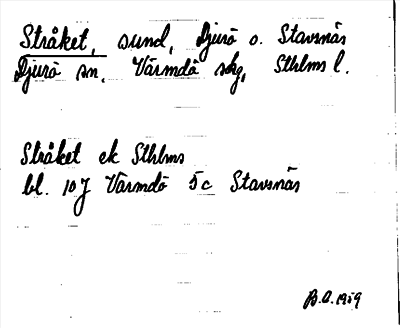 Stråket, sund, Djurö o. Stavsnäs
Djurö sn, Värmdö skg, Sthlms l.
Stråket ek Sthlms
bl. 10J Värmdö 5c Stavsnäs
B.O. 1959